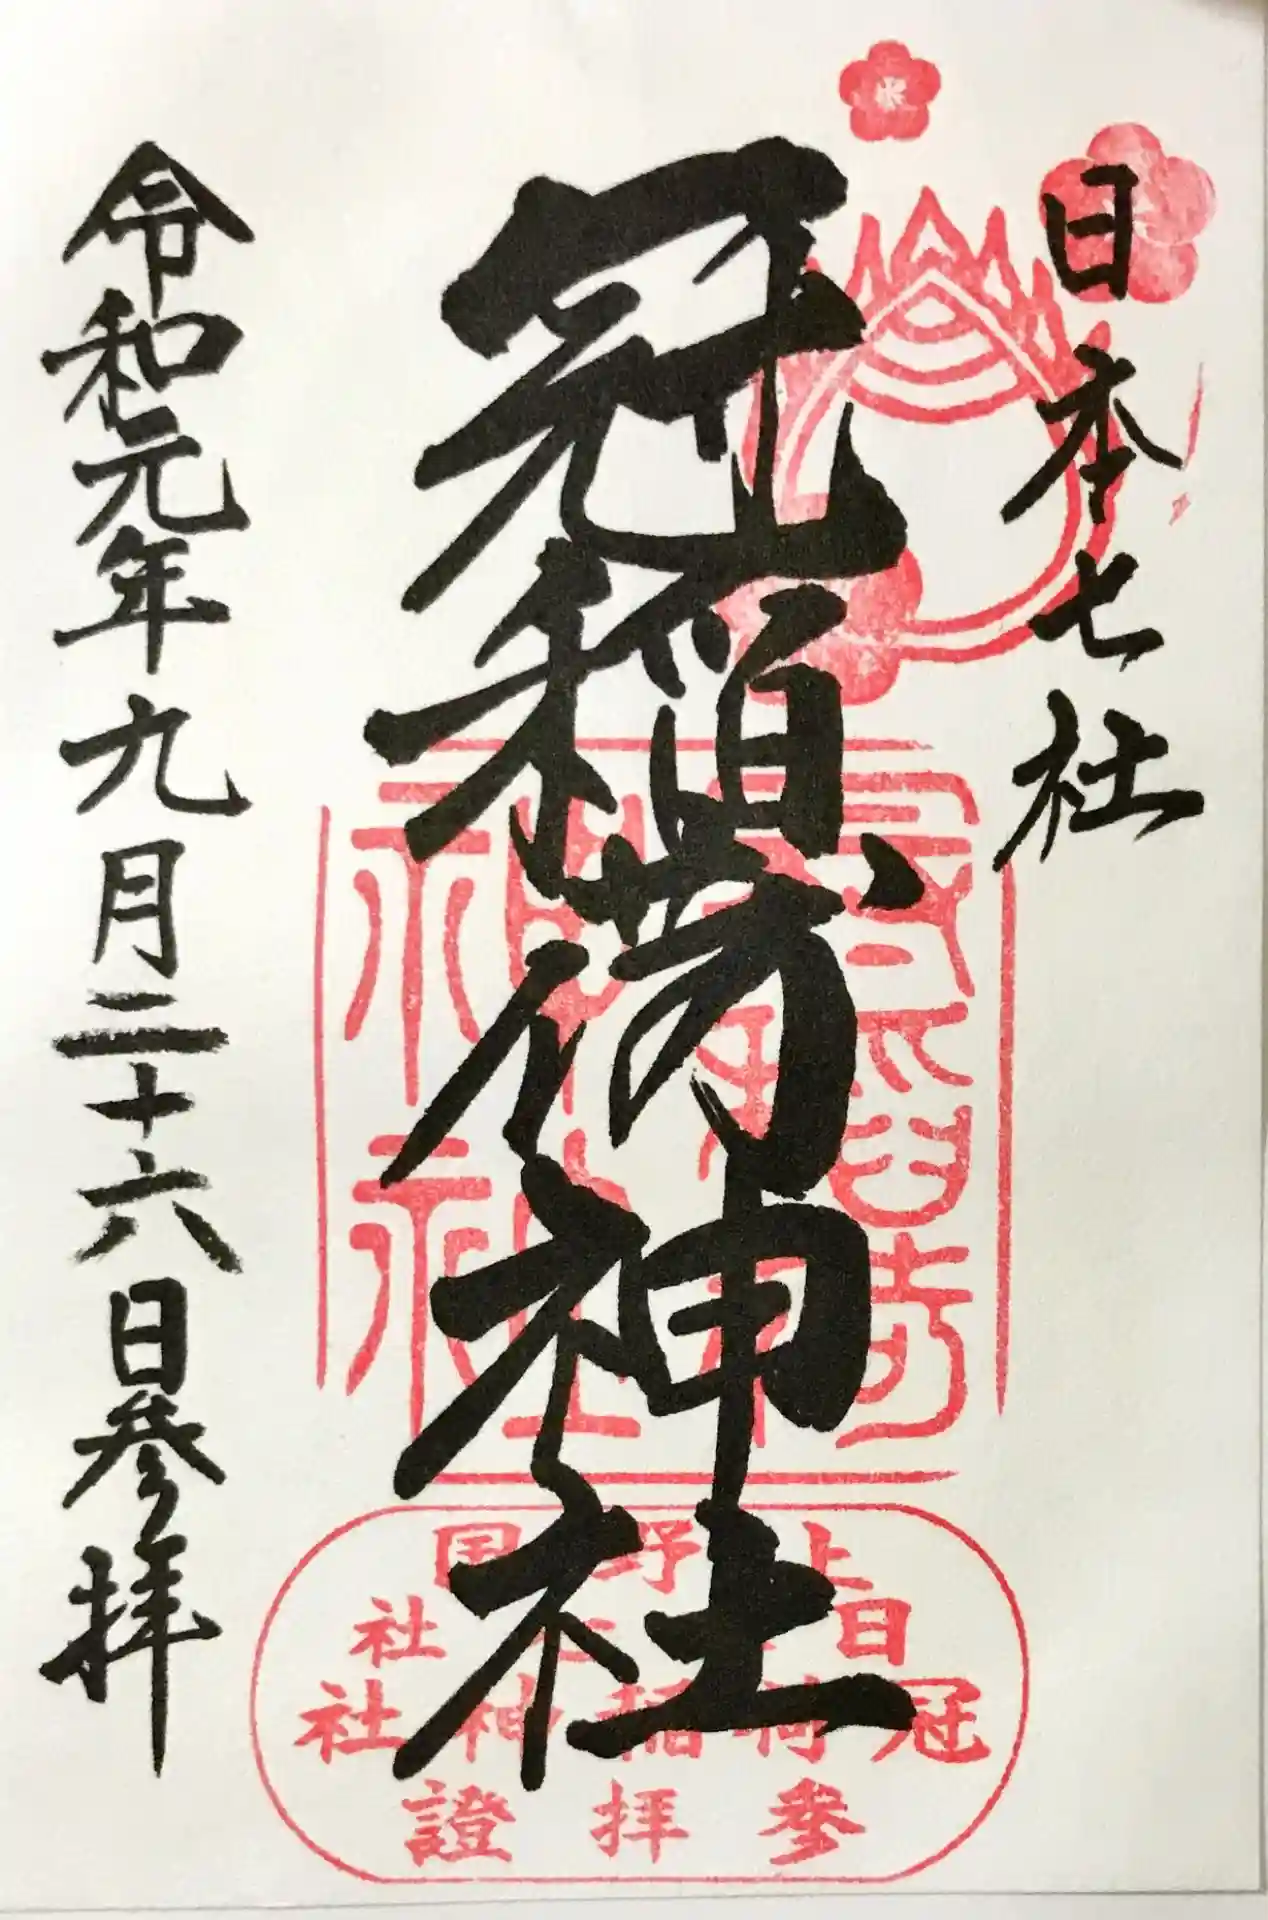 日本七社
冠稲荷神社
令和元年九月二十六日参拝
上野国
日 社
冠稲荷神社
参拝證